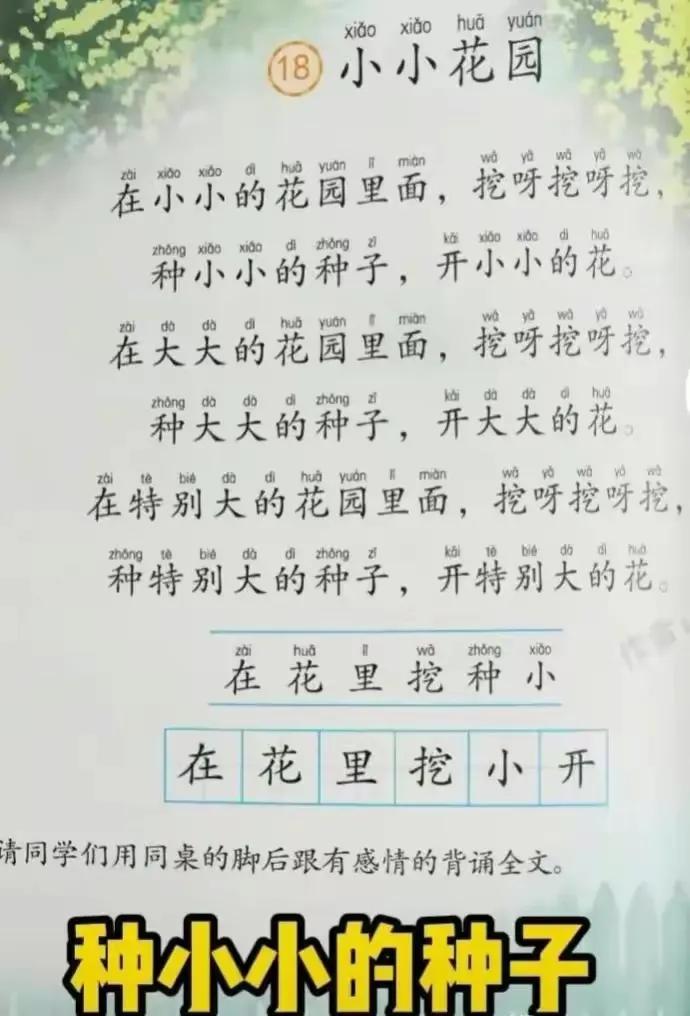 xiǎo xiǎo huā yuán
18 小小花园
zài xiǎo xiǎo dì huā yuán lǐ miàn wā yā wā yā wā
在小小的花园里面，挖呀挖呀挖，
zhǒng xiǎo xiǎo dì zhǒng zǐ kāi xiǎo xiǎo dì huā
种小小的种子，开小小的花。
zài dà dà dì huā yuán lǐ miàn wā yā wā yā wā
在大大的花园里面，挖呀挖呀挖，
zhǒng dà dà dì zhǒng zǐ kāi dà dà dì huā
种大大的种子，开大大的花。
zài tè bié dà dì huā yuán lǐ miàn wā yā wā yā wā
在特别大的花园里面，挖呀挖呀挖，
zhǒng tè bié dà dì zhǒng zǐ kāi tè bié dà dì huā
种特别大的种子，开特别大的花。
zài huā lǐ wā zhǒng xiǎo
在 花 里 挖 种 小
在 花 里 挖 小 开
请同学们用同桌的脚后跟有感情的背诵全文。
种小小的种子